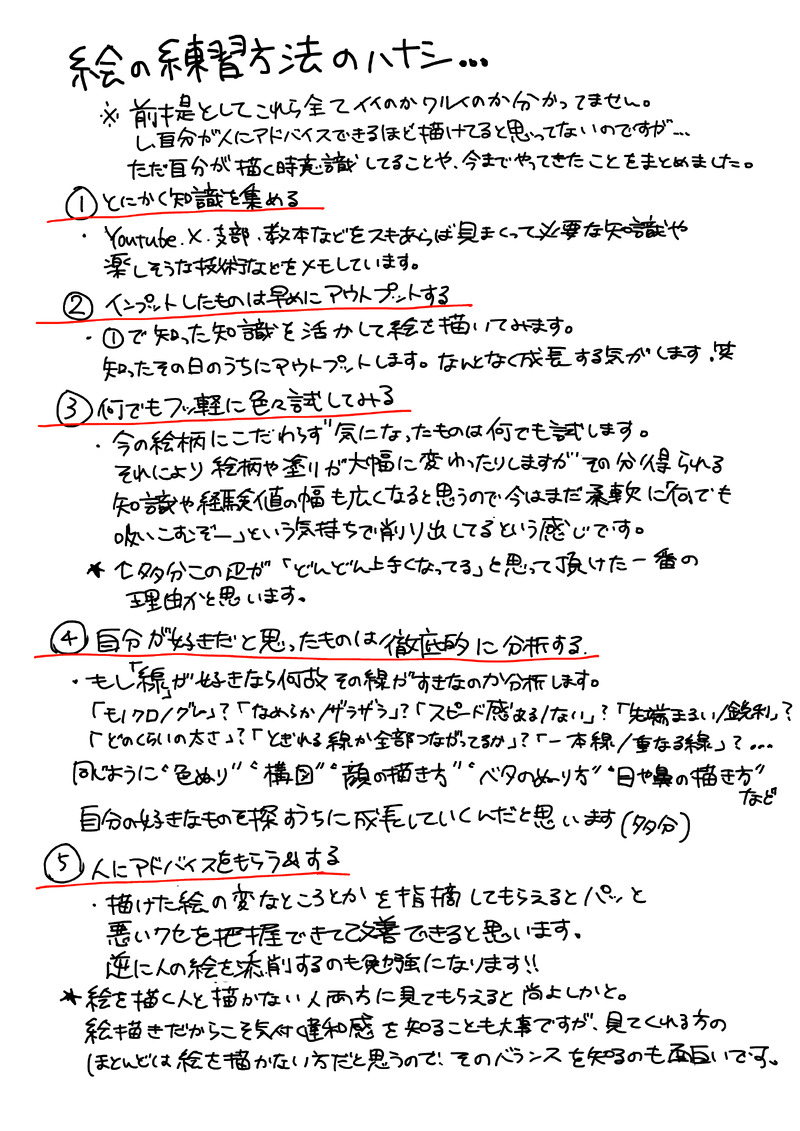 絵の練習方法のハナシ…
※ 前提としてこれら全てイイのかワルイのか分かってません。
し、自分が人にアドバイスできるほど描けてると思ってないのですが…
ただ自分が描く時意識してることや、今までやってきたことをまとめました。
① とにかく知識を集める
・ Youtube.X.支部.教本などをスキあらば見まくって必要な知識や
楽しそうな技術などをメモしています。
② インプットしたものは早めにアウトプットする
・ ①で知った知識を活かして絵を描いてみます。
知ったその日のうちにアウトプットします。なんとなく成長する気がします.笑
③ 何でもフッ軽に色々試してみる
・ 今の絵柄にこだわらず気になったものは何でも試します。
それにより絵柄や塗りが大幅に変わったりしますがその分得られる
知識や経験値の幅も広くなると思うので今はまだ柔軟に「何でも
吸いこむぞー」という気持ちで削り出してるという感じです。
★ ↑多分この辺が「どんどん上手くなってる」と思って頂けた一番の
理由かと思います。
④ 自分が好きだと思ったものは徹底的に分析する.
・もし「線」が好きなら何故その線がすきなのか分析します。
「モノクロ/グレー」?「なめらか/ザラザラ」?「スピード感ある/ない」?「先端まるい/鋭利」?
「どのくらいの太さ」?「とぎれる線か全部つながってるか」?「一本線/重なる線」?…
同じように“色ぬり”“構図”“顔の描き方”“ベタのぬり方”“目や鼻の描き方”
など
自分の好きなものを探すうちに成長していくんだと思います(多分)
⑤ 人にアドバイスをもらう&する
・描けた絵の変なところとかを指摘してもらえるとパッと
悪いクセを把握できて改善できると思います。
逆に人の絵を添削するのも勉強になります!!
★ 絵を描く人と描かない人両方に見てもらえると尚よしかと。
絵描きだからこそ気付く違和感を知ることも大事ですが、見てくれる方の
ほとんどは絵を描かない方だと思うので、そのバランスを知るのも面白いです。